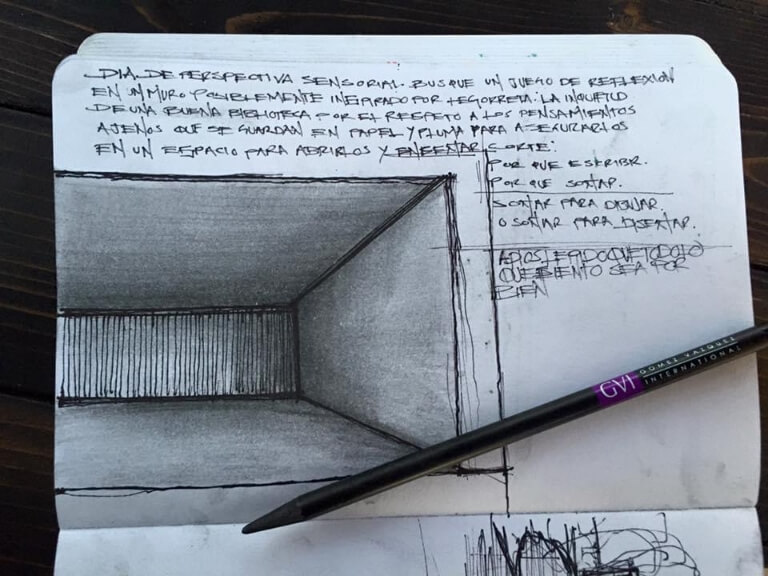 DIA DE PERSPECTIVA SENSORIAL. BUSQUE UN JUEGO DE REFLEXIÓN
EN UN MURO POSIBLEMENTE INSPIRADO POR LEGORRETA: LA
DE UNA BUENA BIBLIOTECA POR EL RESPETO A LOS PENSAMIENTOS
AJENOS QUE SE GUARDAN EN PAPEL Y PLUMA PARA ASEGURARLOS
EN UN ESPACIO PARA ABRIRLOS Y ENSEÑAR CORTE:
POR QUE ESCRIBIR.
POR QUE SOÑAR.
SOÑAR PARA DIBUJAR.
O SOÑAR PARA DISEÑAR.
A DIOS LE PIDO QUE TODO LO
QUE SIENTO SEA POR
BIEN
GVI GOMEZ VAZQUEZ
INTERNATIONAL